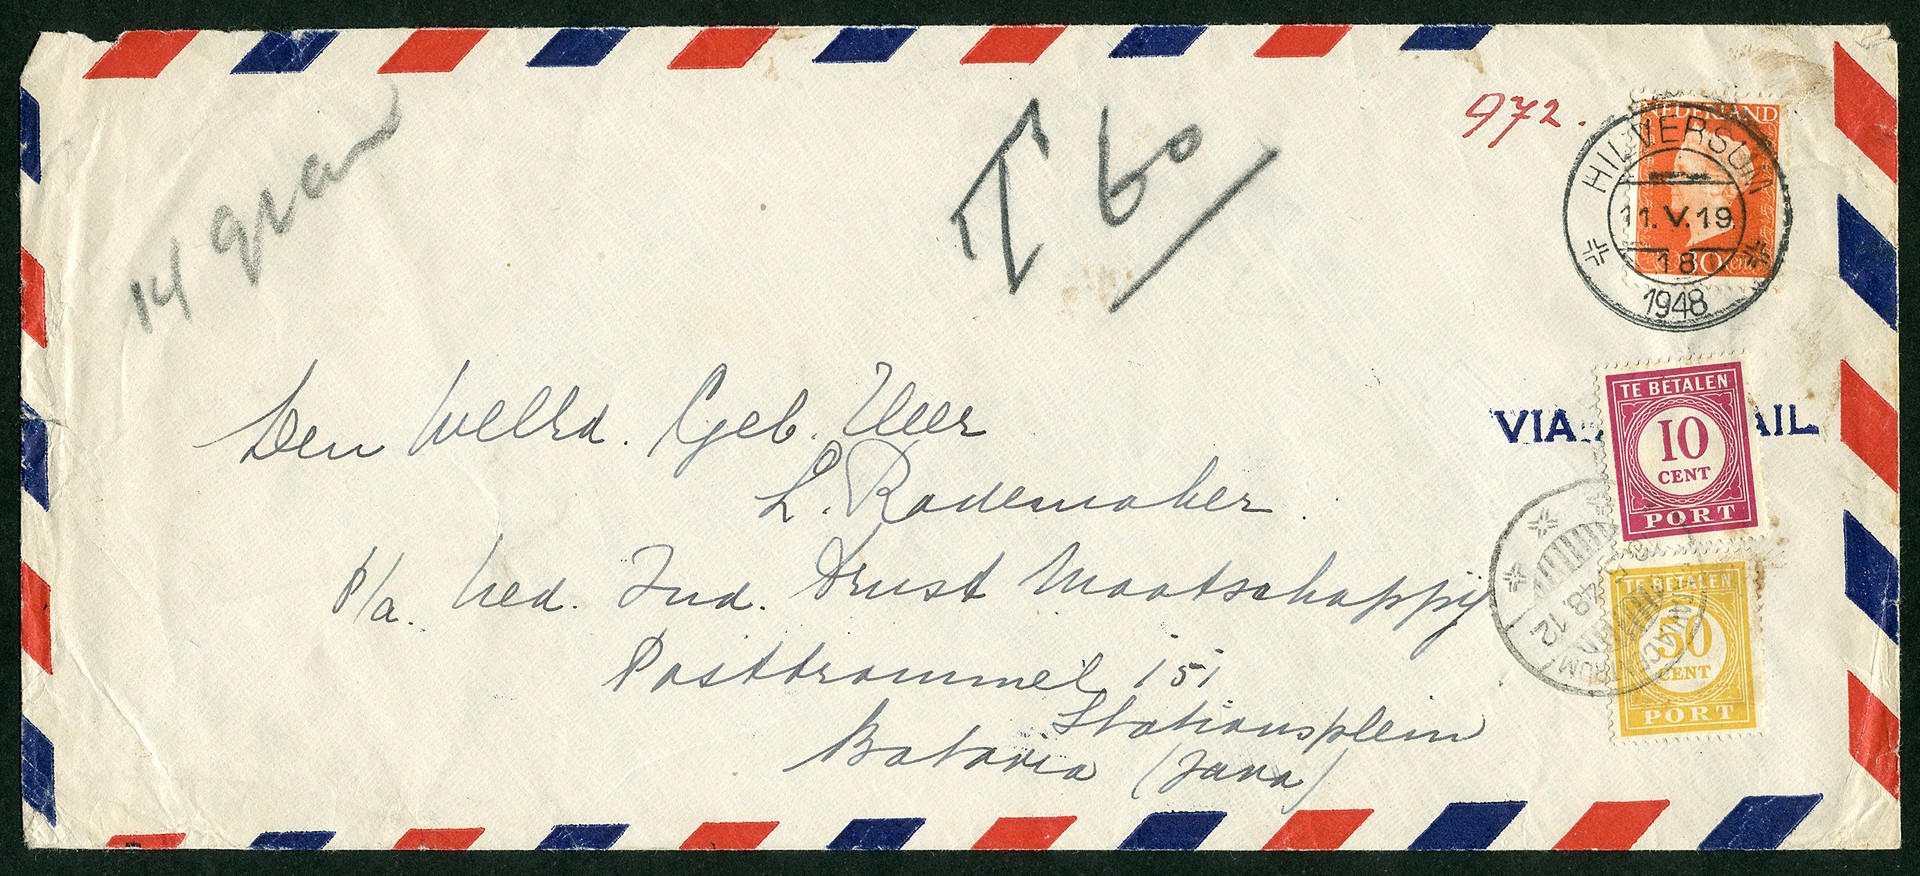 14 gram
T 60
972.
NEDERLAND
30 cent
HILVERSUM
11.V.19
18
1948
VIA AIL
TE BETALEN
10
CENT
PORT
TE BETALEN
50
CENT
PORT
48.12
CENTRUM
Den WelEd. Geb. Heer
L. Rademaker.
P/a. Ned. Ind. Trust Maatschappij
Posttrommel 151
Stationsplein
Batavia (Java)